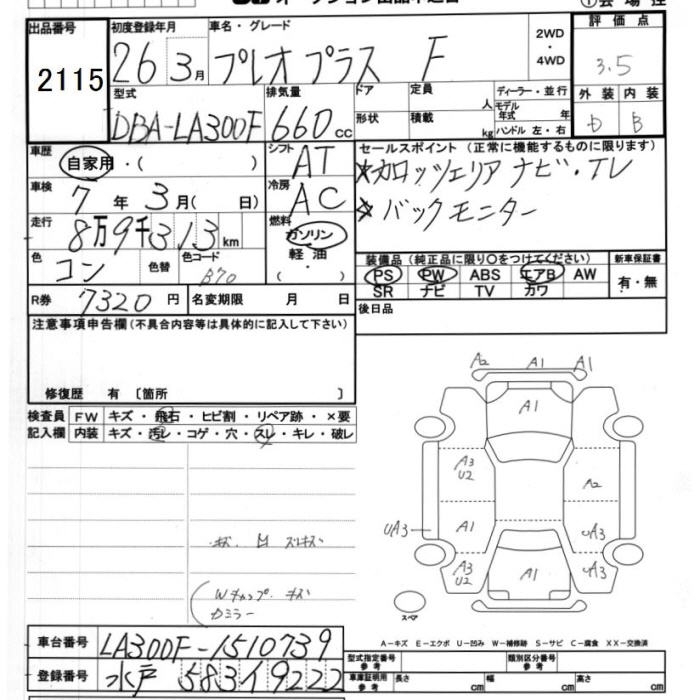 出品番号
2115
初度登録年月
26 3月
車名・グレード
プレオプラス F
2WD
・
4WD
評価点
3.5
型式
DBA-LA300F
排気量
660cc
ドア
形状
定員
人
積載
kg
ディーラー・並行
モデル年式 年
ハンドル 左・右
外装 内装
D B
車歴
自家用・( )
シフト
AT
車検
7年3月( 日)
冷房
AC
走行
8万9千313km
燃料
ガソリン
軽油
・
( )
色
コン
色替
色コード
B70
R券 7320円
名変期限 月 日
セールスポイント (正常に機能するものに限ります)
☆カロッツェリア ナビ・TV
☆バックモニター
装備品 (純正品に限り○をつけてください)
PS PW ABS エアB AW
SR ナビ TV カワ
新車保証書
有・無
後日品
注意事項申告欄(不具合内容等は具体的に記入して下さい)
修復歴 有 〔箇所 〕
検査員 FW キズ・飛石・ヒビ割・リペア跡・×要
記入欄 内装 キズ・汚レ・コゲ・穴・スレ・キレ・破レ
カミラー
A2 A1 A1
A1
A3
U2
A2
UA3
A1
UA3
A3
U2
A1
UA3
スペア
A-キズ E-エクボ U-凹み W-補修跡 S-サビ C-腐食 XX-交換済
車台番号 LA300F-1510739
登録番号 水戸 583 イ 9222
型式指定番号
参考
類別区分番号
参考
車庫証明用
参考
長さ cm
幅 cm
高さ cm